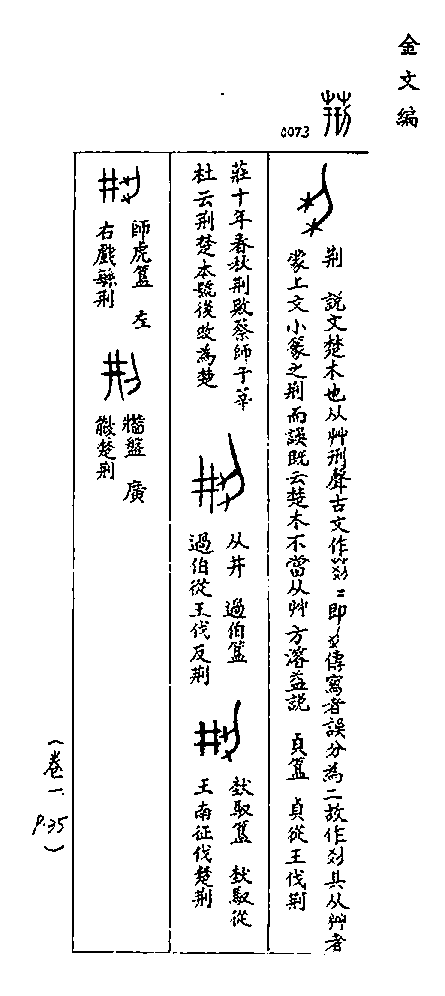 金文编
荊
0073
荆 說文楚木也从艸刑聲古文作𦮃=即刅傳寫者誤分為二故作𦮃其从艸者
蒙上文小篆之荆而誤既云楚木不當从艸方濬益說 貞簋 貞從王伐荆
莊十年春秋荆敗蔡師于莘
杜云荆楚本號後改為楚
从井 過伯簋
過伯從王伐反荆
𤞷馭簋 𤞷馭從
王南征伐楚荆
師虎簋 左
右戲緐荆
牆盤 廣
楚荆
(卷一 P.35)